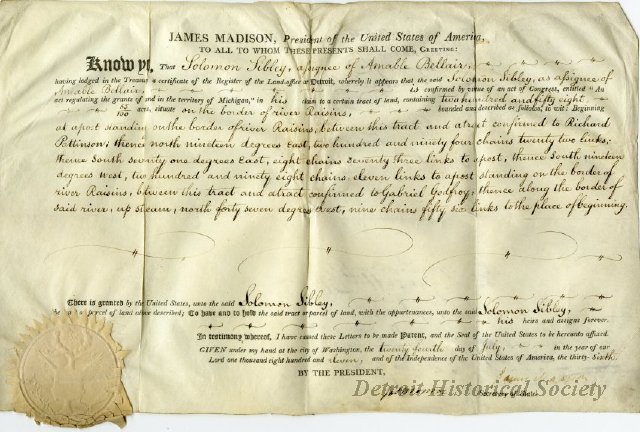 JAMES MADISON, President of the United States of America,
TO ALL TO WHOM THESE PRESENTS SHALL COME, GREETING:
Know ye, That Solomon Sibley, assignee of Amable Bellair,
having lodged in the Treasury a certificate of the Register of the Land-office at Detroit, whereby it appears that the said Solomon Sibley, as assignee of
Amable Bellair is confirmed by virtue of an act of Congress, entitled "An
act regulating the grants of land in the territory of Michigan," in his claim to a certain tract of land, containing two hundred and fifty eight
/100 acres, situate on the border of river Raisins, bounded and described as follows, to wit: Beginning
at a post standing on the border of river Raisins, between this tract and a tract confirmed to Richard
Pattinson; thence north nineteen degrees East, two hundred and ninety four chains twenty two links;
thence South seventy one degrees East, eight chains seventy three links to a post, thence South nineteen
degrees west, two hundred and ninety eight chains eleven links to a post standing on the border of
river Raisins, between this tract and a tract confirmed to Gabriel Godfroy; thence along the border of
said river, up stream, north forty seven degrees West, nine chains fifty six links to the place of beginning.
There is granted by the United States, unto the said Solomon Sibley,
the parcel of land above described; To have and to hold the said tract or parcel of land, with the appurtenances, unto the said Solomon Sibley,
his heirs and assigns forever.
In testimony whereof, I have caused these Letters to be made Patent, and the Seal of the United States to be hereunto affixed.
GIVEN under my hand at the city of Washington, the twenty fourth day of July, in the year of our
Lord one thousand eight hundred and eleven, and of the Independence of the United States of America, the thirty-sixth
BY THE PRESIDENT,
Secretary of State.
Detroit Historical Society